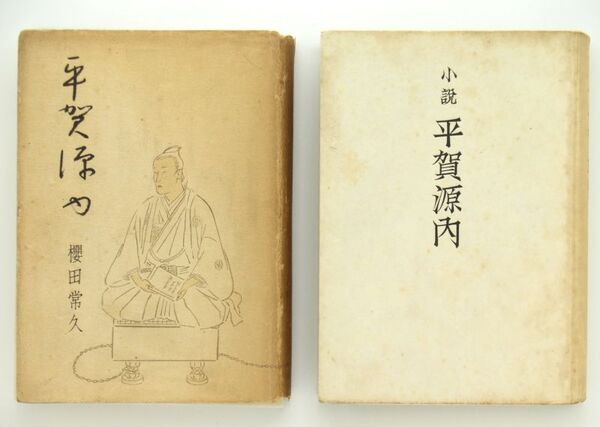 平賀源内
櫻田常久
小說
平賀源內